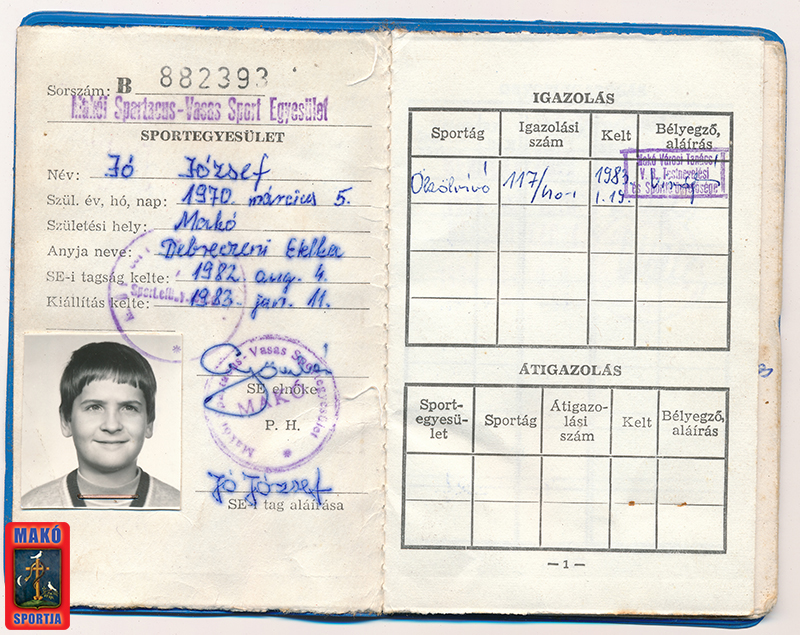 Sorszám: B 882393
Makói Spartacus-Vasas Sport Egyesület
SPORTEGYESÜLET
Név: Jó József
Szül. év, hó, nap: 1970. március 5.
Születési hely: Makó
Anyja neve: Debreczeni Etelka
SE-i tagság kelte: 1982. aug. 4.
Kiállítás kelte: 1983. jan. 11.
SE elnöke
Makói Spartacus-Vasas Sportegyesület
MAKÓ
P. H.
Jó József
SE-i tag aláírása
MAKÓ
SPORTJA
IGAZOLÁS
Sportág
Igazolási szám
Kelt
Bélyegző, aláírás
Ökölvívó
1983
I. 19.
Makó Városi Tanács
V. B. Testnevelési
és Sport
ÁTIGAZOLÁS
Sport-
egyesü-
let
Sportág
Átigazo-
lási
szám
Kelt
Bélyegző,
aláírás
— 1 —